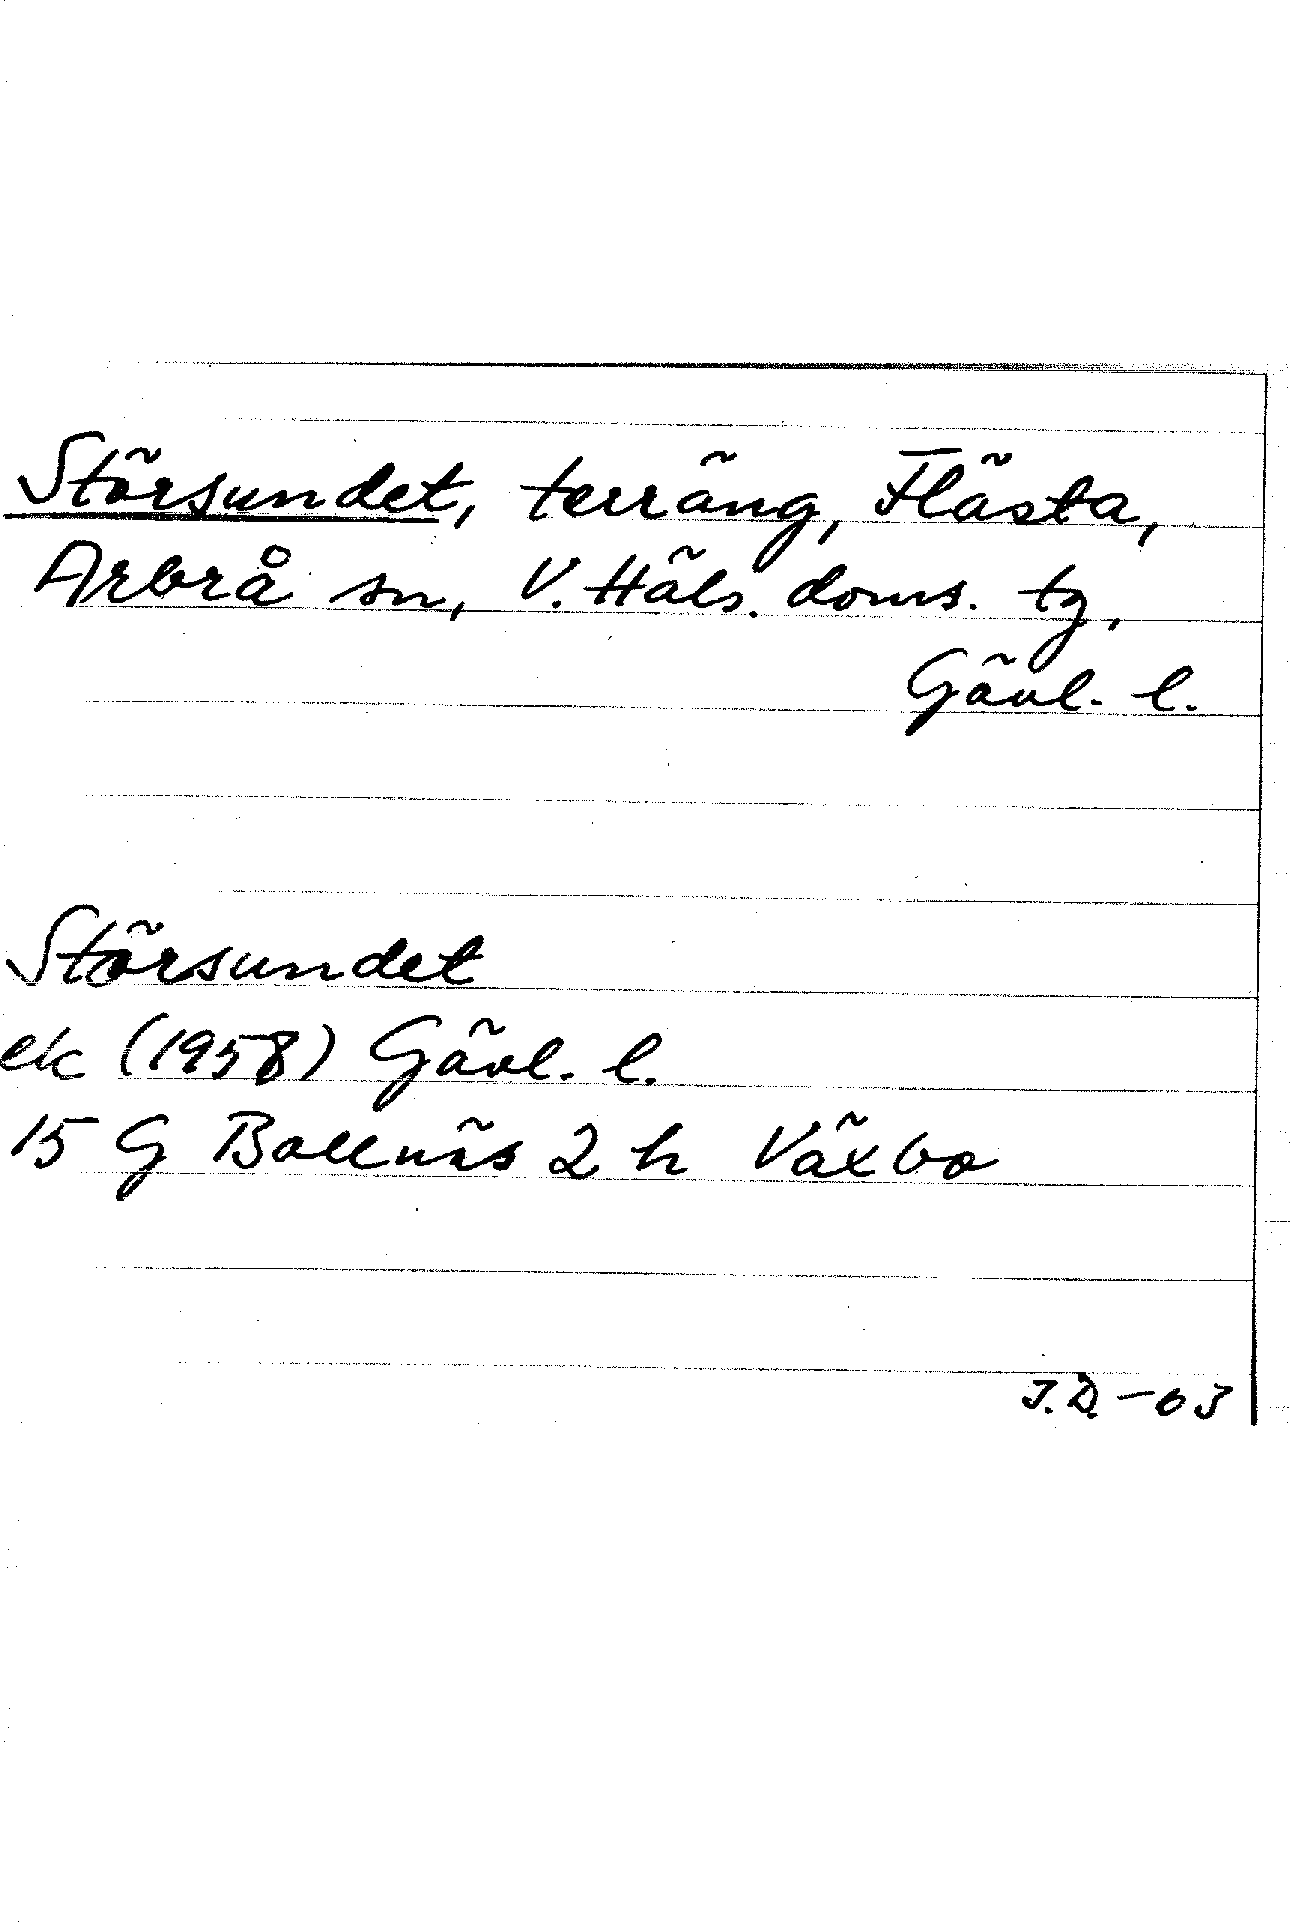 Störsundet, terräng, Flästa,
Arbrå sn, V. Häls. doms. tg,
Gävl. l.
Störsundet
ek (1958) Gävl. l.
15 G Bollnäs 2 h Växbo
J.D.-63